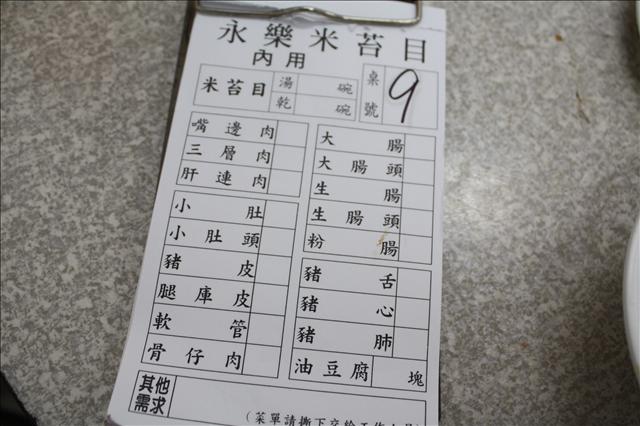 永樂米苔目
內用
米苔目 湯 碗
乾 碗
桌號 9
嘴邊肉
三層肉
肝連肉
小肚
小肚頭
豬皮
腿庫皮
軟管
骨仔肉
大腸
大腸頭
生腸
生腸頭
粉腸
豬舌
豬心
豬肺
油豆腐 塊
其他需求
(菜單請撕下交給工作人員)